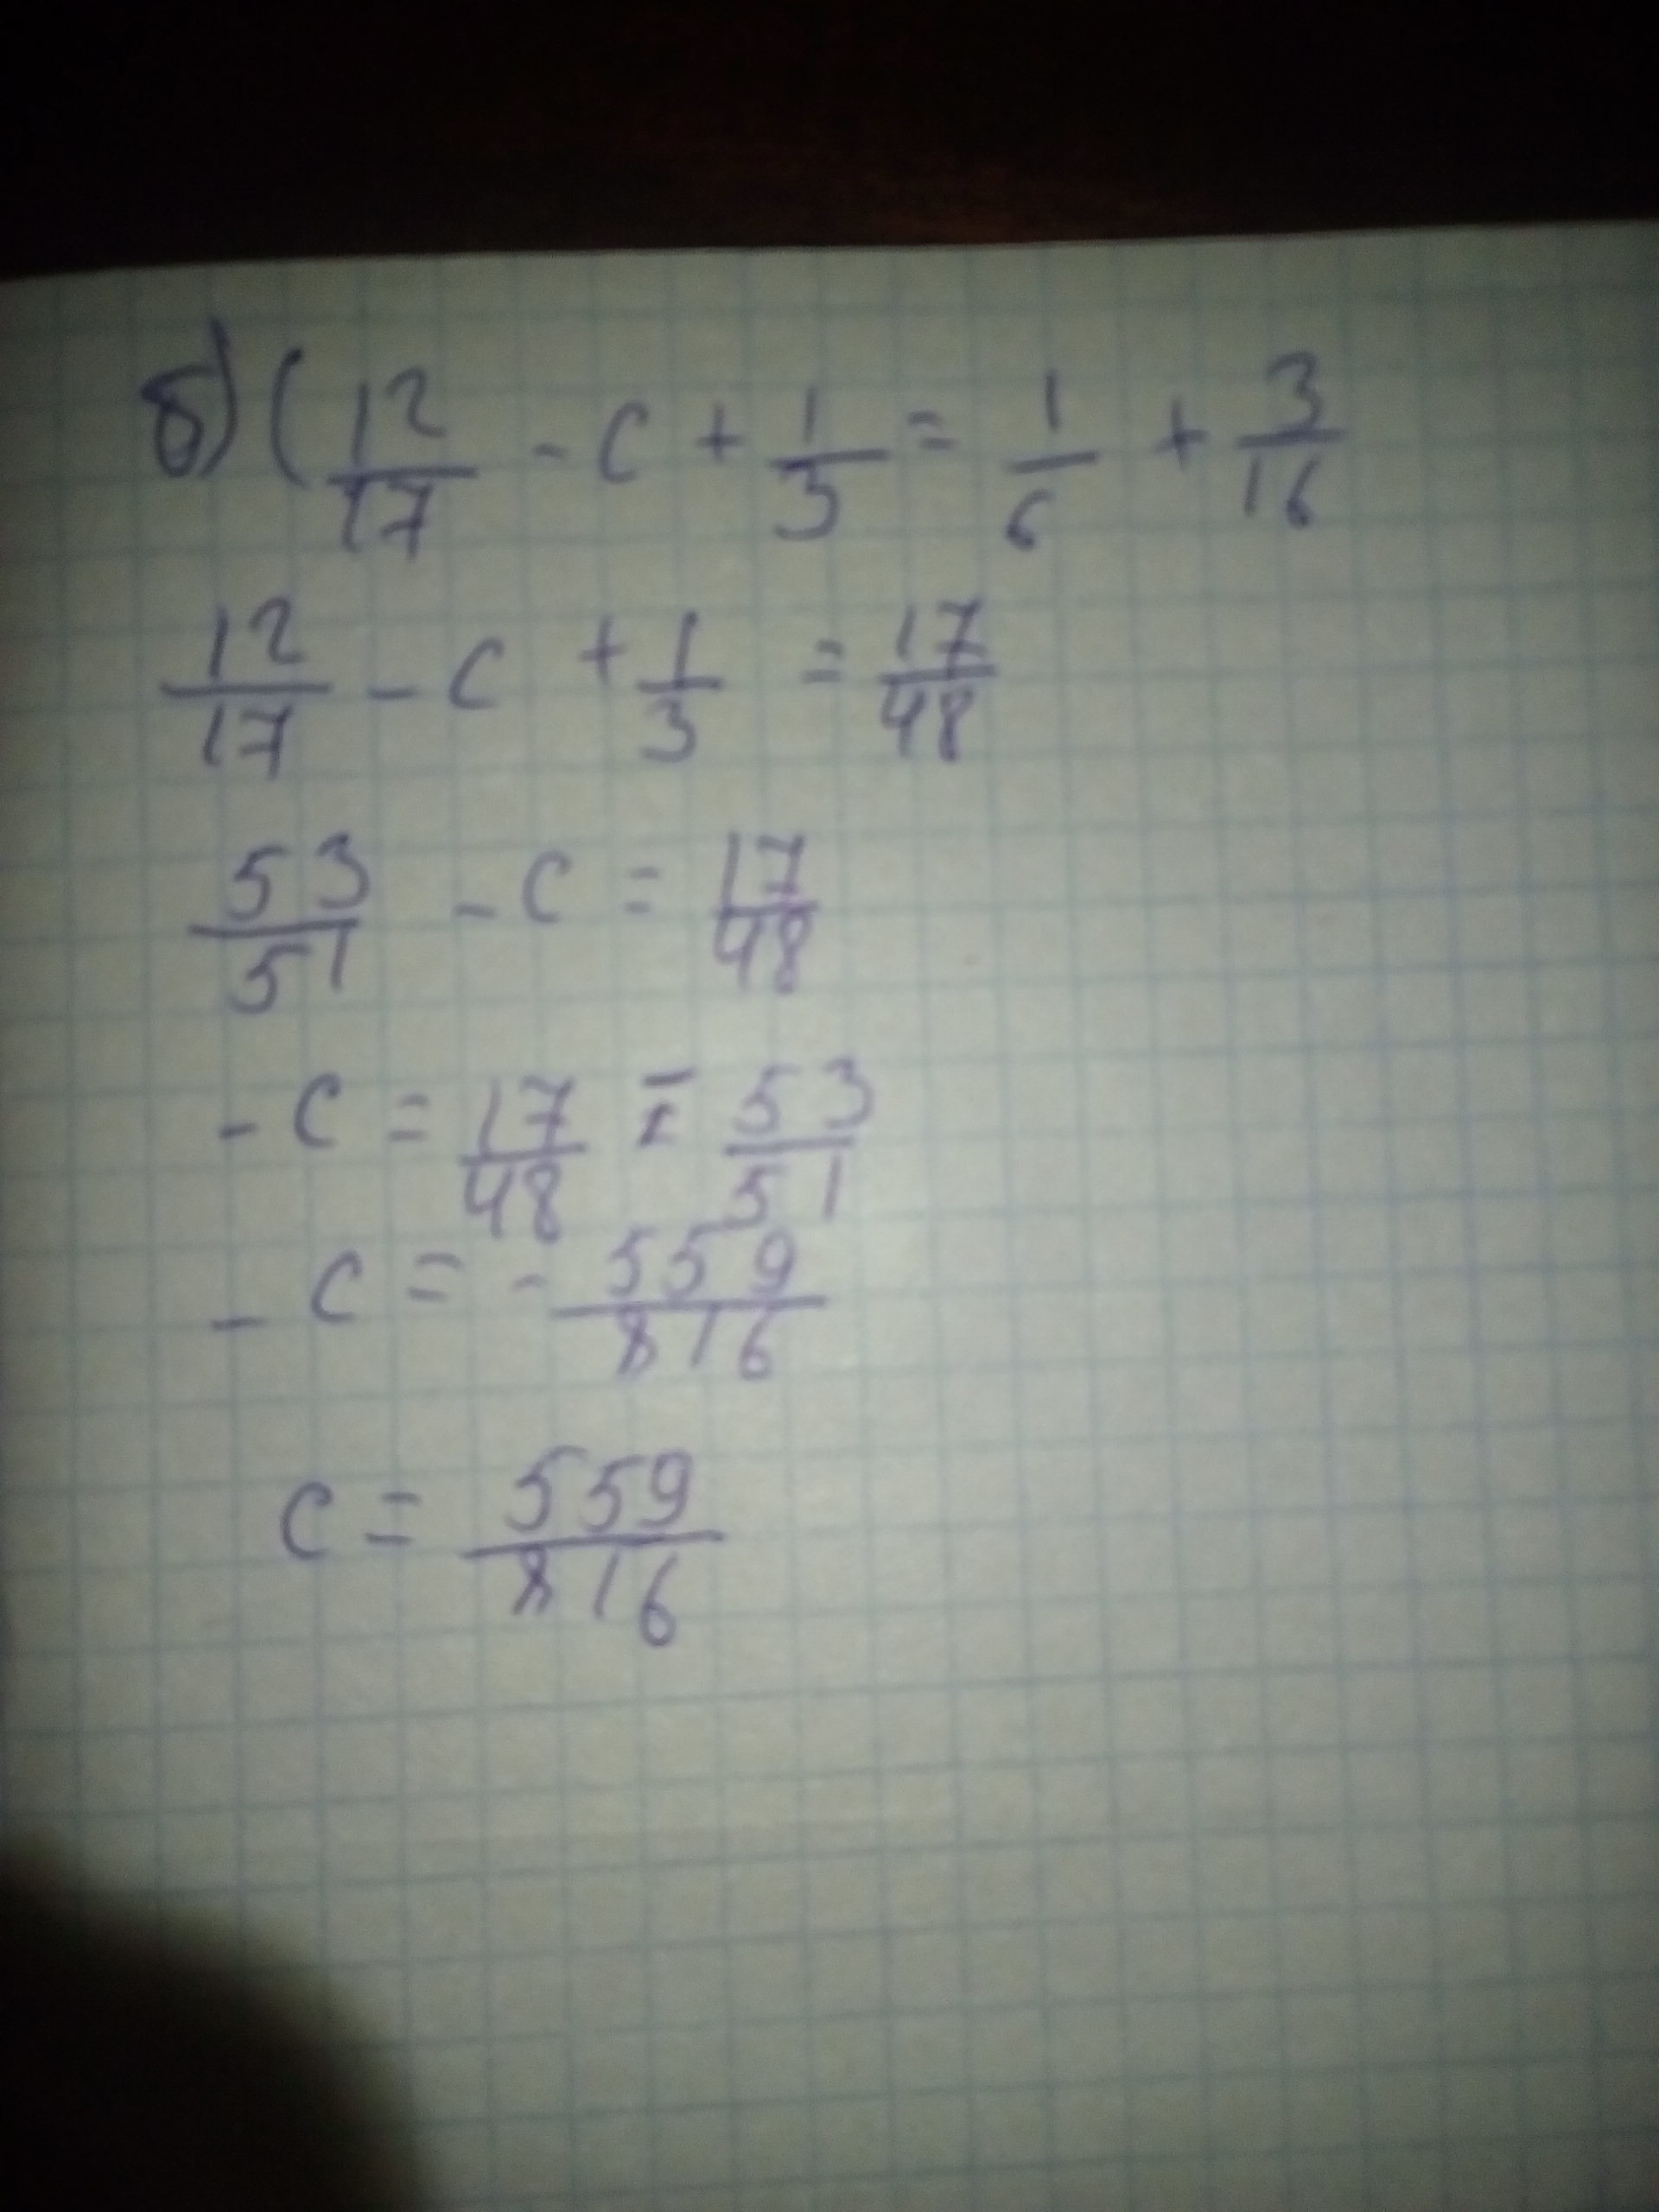 б) (12/17 - c + 1/3 = 1/6 + 3/16
12/17 - c + 1/3 = 17/48
53/51 - c = 17/48
- c = 17/48 - 53/51
- c = - 559/816
c = 559/816